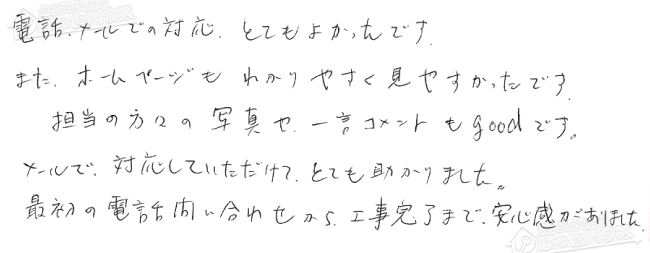 電話、メールでの対応、とてもよかったです。
また、ホームページもわかりやすく見やすかったです。
担当の方々の写真や、一言コメントもgoodです。
メールで、対応していただけて、とても助かりました。
最初の電話問い合わせから、工事完了まで、安心感がありました。